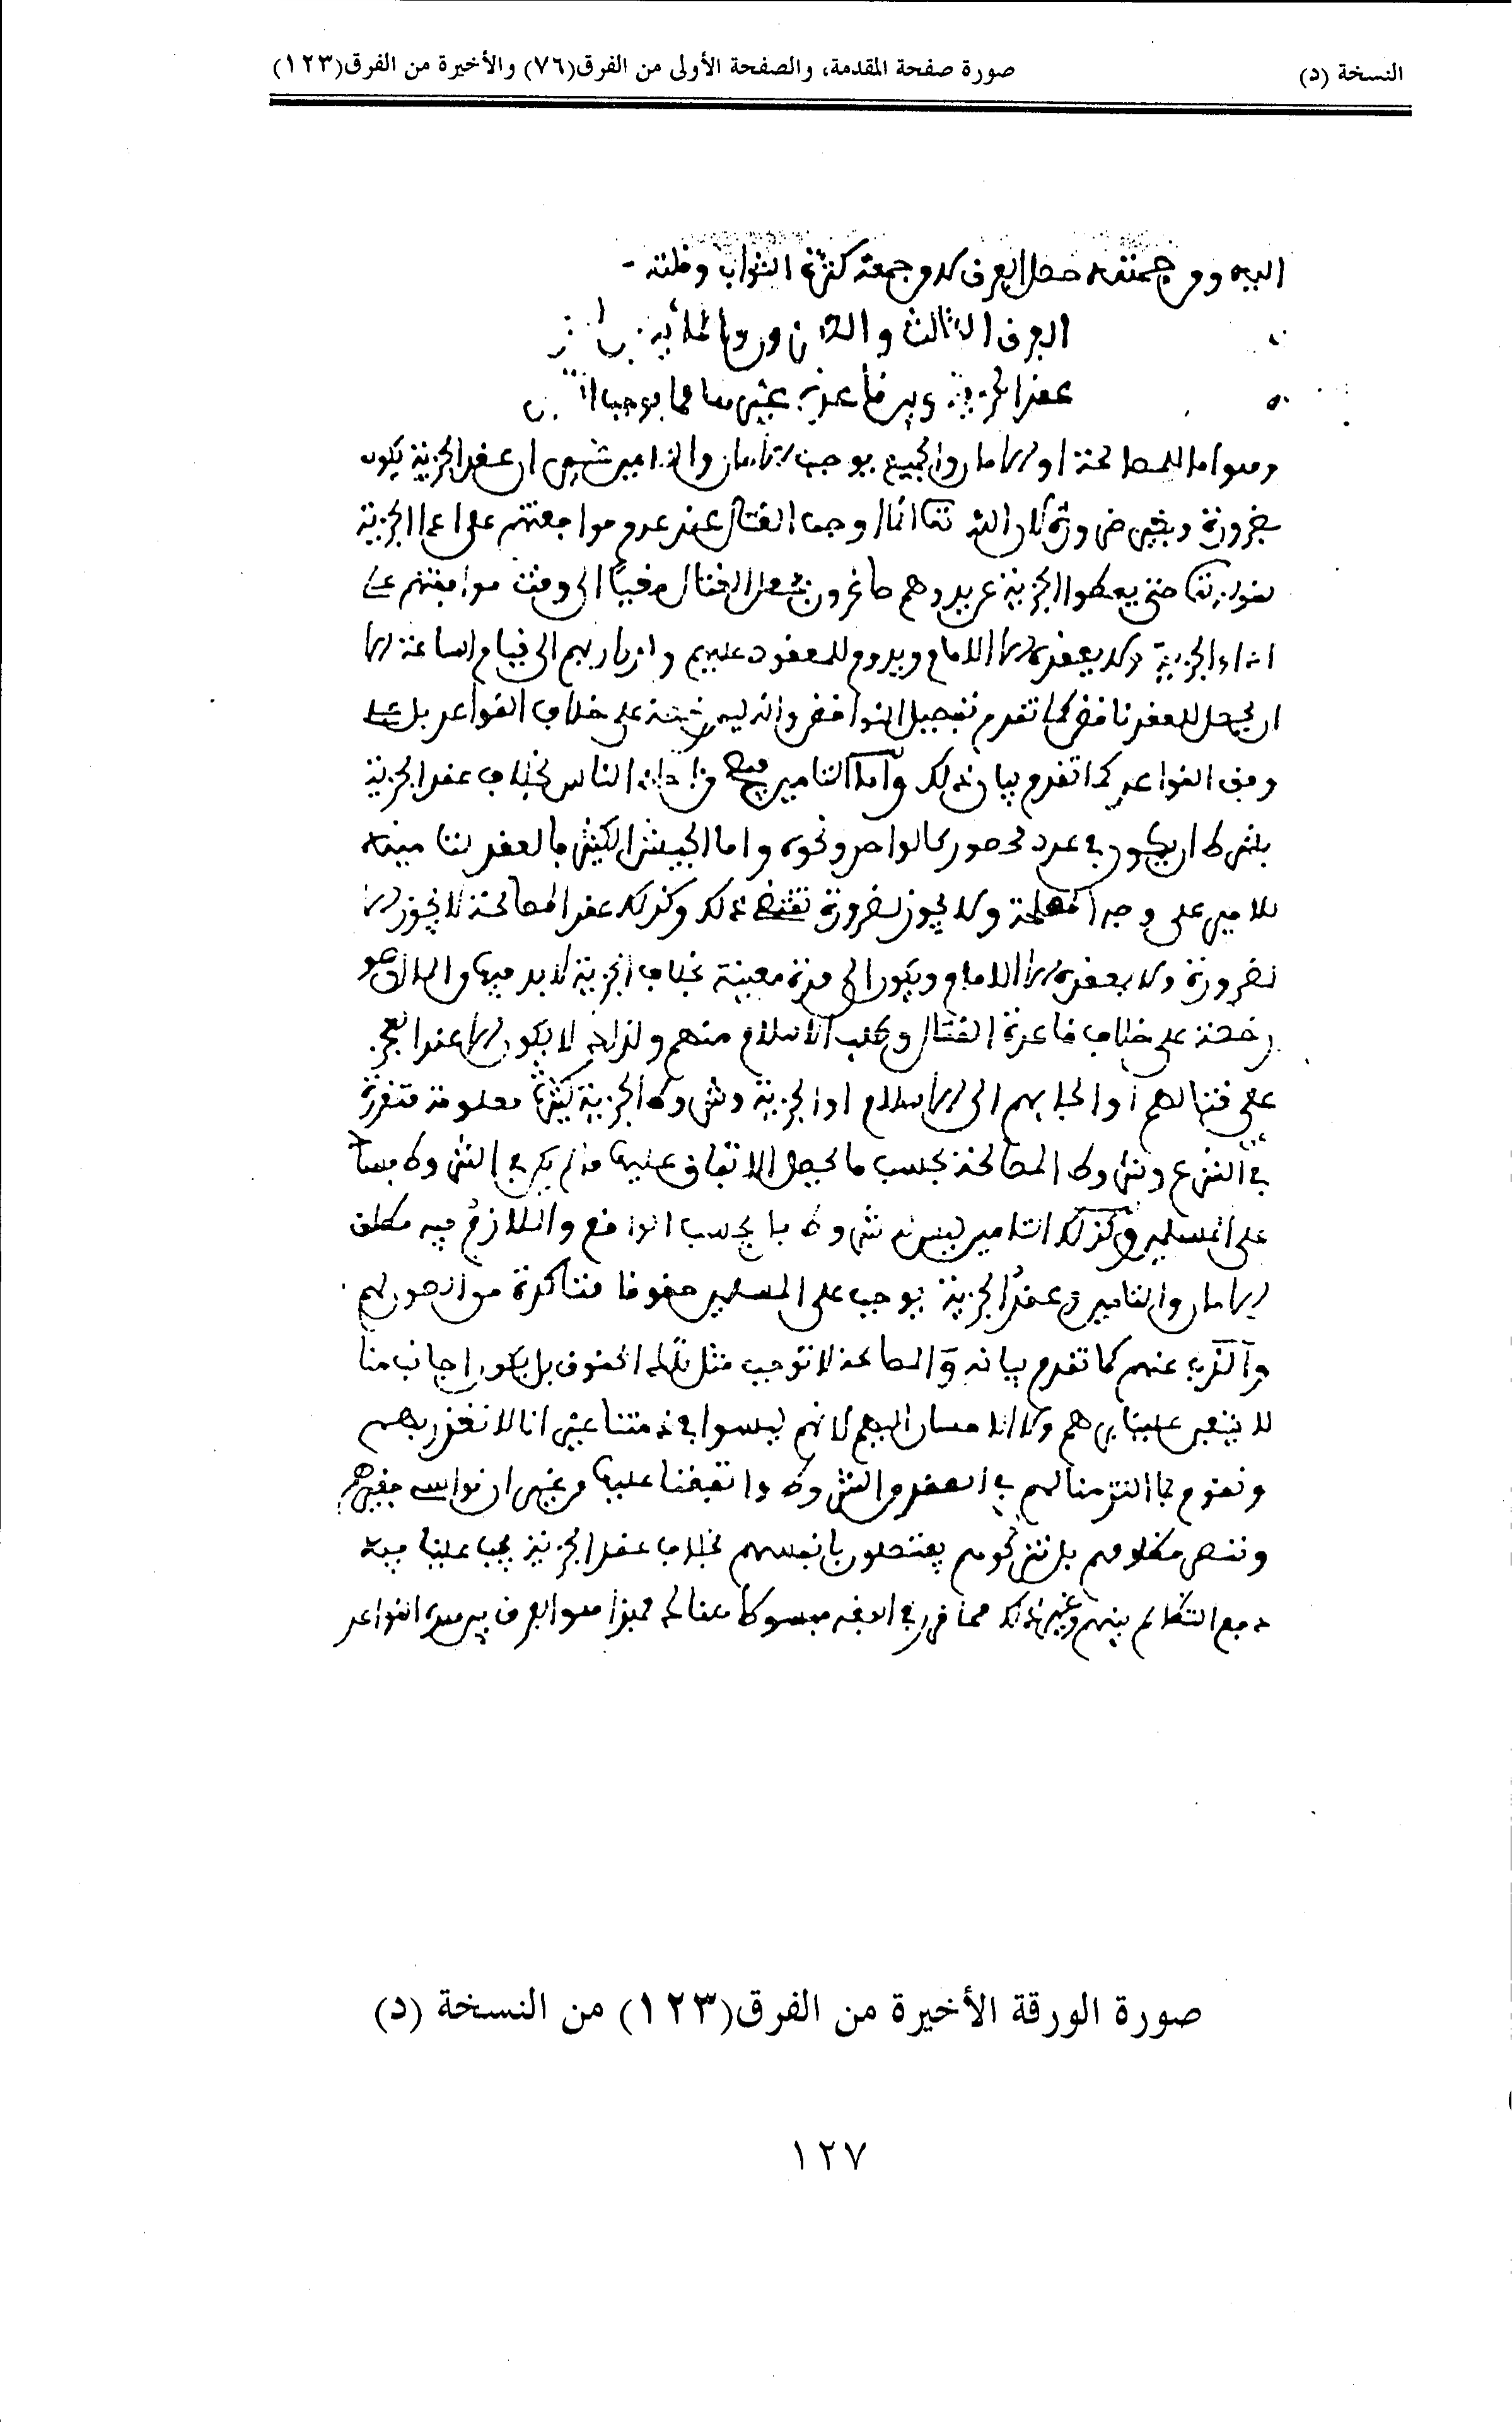 النسخة (د) صورة صفحة المقدمة، والصفحة الأولى من الفرق(٧٦) والأخيرة من الفرق(١٢٣)
اليه ومن جهته حصل الفرق لا من جهة كثرة الثواب وقلته
الفرق الثالث والعشرون والمائة بين
عقد الجزية وبين قاعدة غيرها مما يوجب
وهو اما المصالحة او الامان والجميع يوجب الامان والتامين ان عقد الجزية يكون
لضرورة ولغير ضرورة لان الله تعالى انما اوجب القتال عند عدم موافقتهم على اعطاء الجزية
لقوله تعالى حتى يعطوا الجزية عن يد وهم صاغرون فجعل القتال مغيا الى وقت موافقتهم على
اداء الجزية ولا يعقده الا الامام ويدوم للمعقود عليهم ولذراريهم الى قيام الساعة الا
ان يحصل للعقد ناقض كما تقدم تفصيل النواقض وانه ليس رخصة على خلاف القواعد بل على
وفق القواعد كما تقدم بيان ذلك واما التامين فيصح من الناس بخلاف عقد الجزية
بشرط ان يكون في عدد محصور كالواحد ونحوه واما الجيش الكثير فالعقد لتامينه
للامير على وجه المصلحة ولا يجوز لضرورة تقتضي ذلك وكذلك عقد المصالحة لا يجوز الا
لضرورة ولا يعقده الا الامام ويكون الى مدة معينة بخلاف الجزية لا بد فيها والمال هو
رخصة على خلاف قاعدة القتال وطلب الاسلام منهم ولذلك لا يكون الا عند العجز
على قتالهم او الجايهم الى الاسلام او الجزية وشروط الجزية كثيرة معلومة متقررة
في الشرع وشروط المصالحة بحسب ما يحصل الاتفاق عليها ما لم يكن في الشروط فساد
على المسلمين وكذلك التامين ليس له شروط بل بحسب الواقع واللازم فيه مطلق
الامان والتامين وعقد الجزية يوجب على المسلمين حقوقا متاكدة من الصون لهم
والذب عنهم كما تقدم بيانه والمصالحة لا توجب مثل تلك الحقوق بل يكون اجانب منا
لا يتعين علينا برهم ولا الاحسان اليهم لانهم ليسوا في ذمتنا غير انا لا نغدر بهم
ونقوم بما التزمنا لهم في العقد من الشروط واتفقنا عليها من غير ان نواسي فقيرهم
وننصر مظلومهم بل نتركهم ينفصلون بانفسهم بخلاف عقد الجزية يجب علينا فيه
دفع التظالم بينهم وغير ذلك مما قرر في الفقه مبسوطا هنالك فهذا هو الفرق بين هذه القواعد
صورة الورقة الأخيرة من الفرق(١٢٣) من النسخة (د)
١٢٧